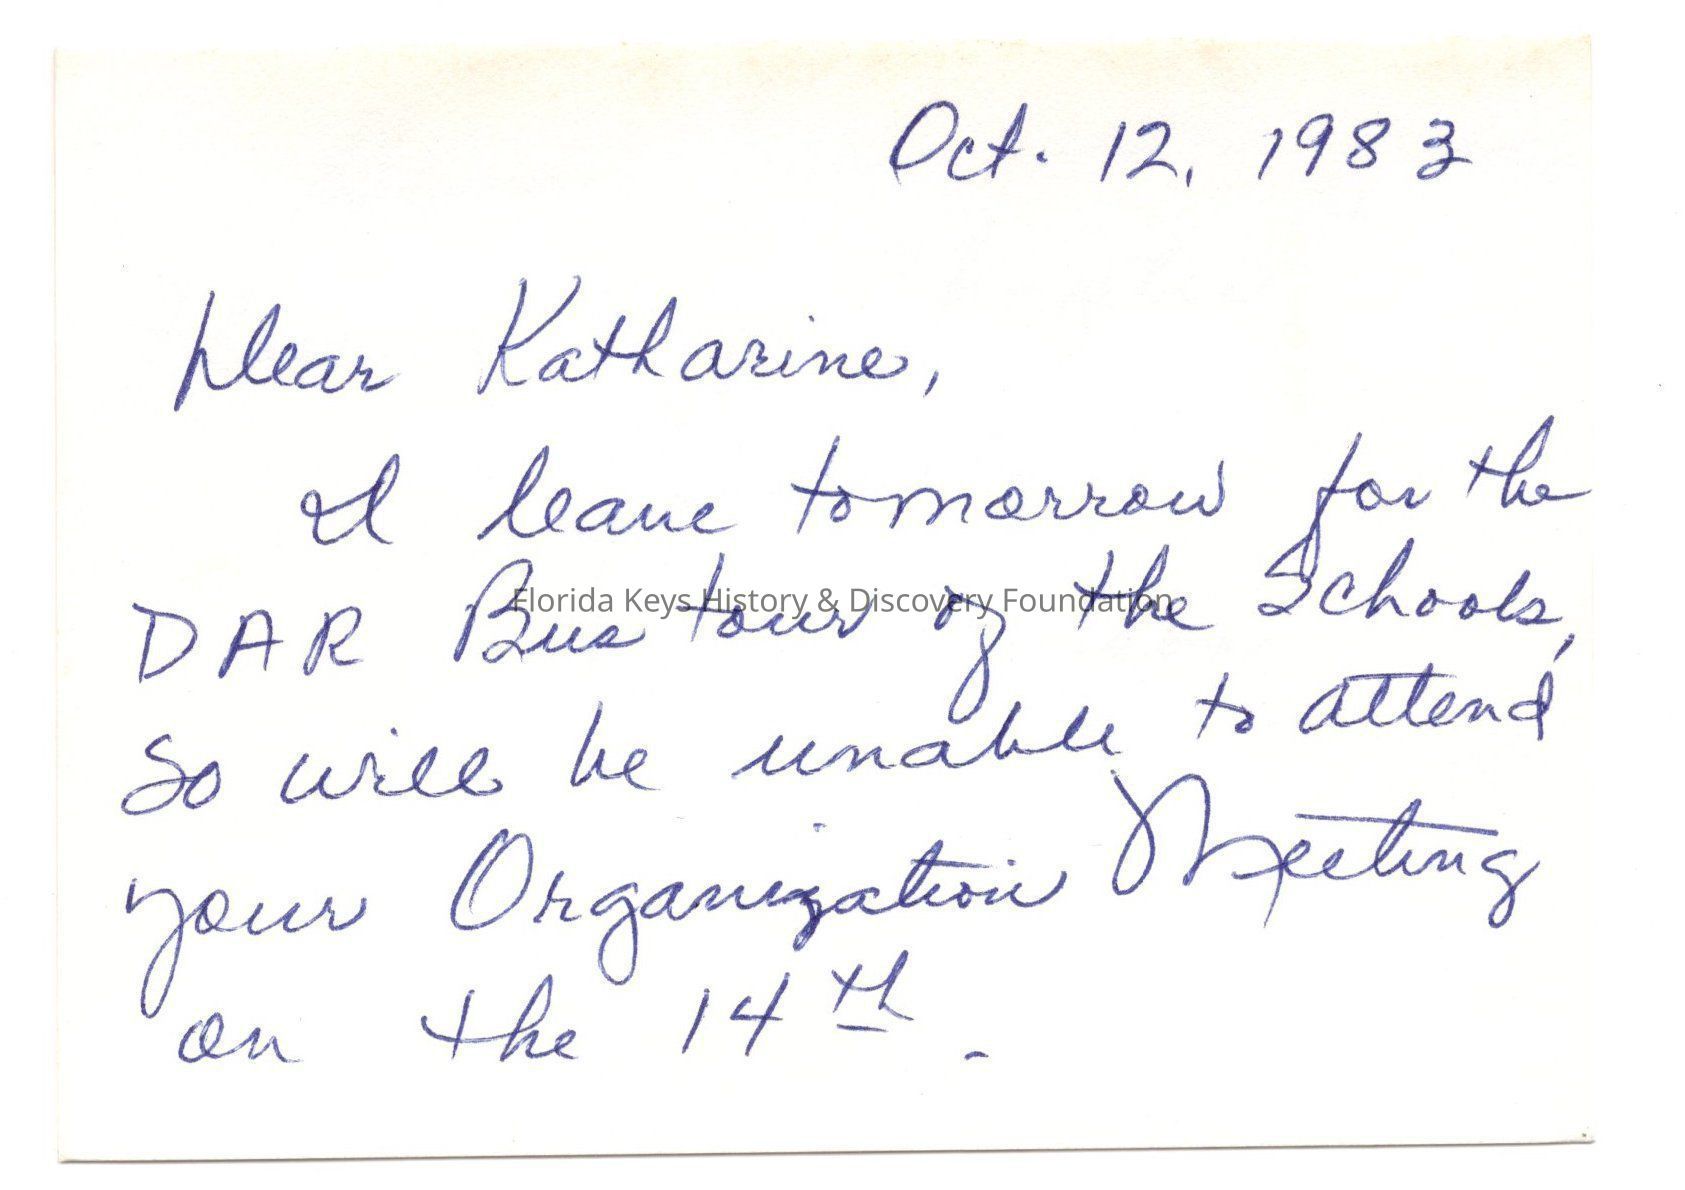 Oct. 12, 1983
Dear Katharine,
I leave tomorrow for the
DAR Bus tour of the Schools,
Florida Keys History & Discovery Foundation
so will be unable to attend
your Organization Meeting
on the 14th.